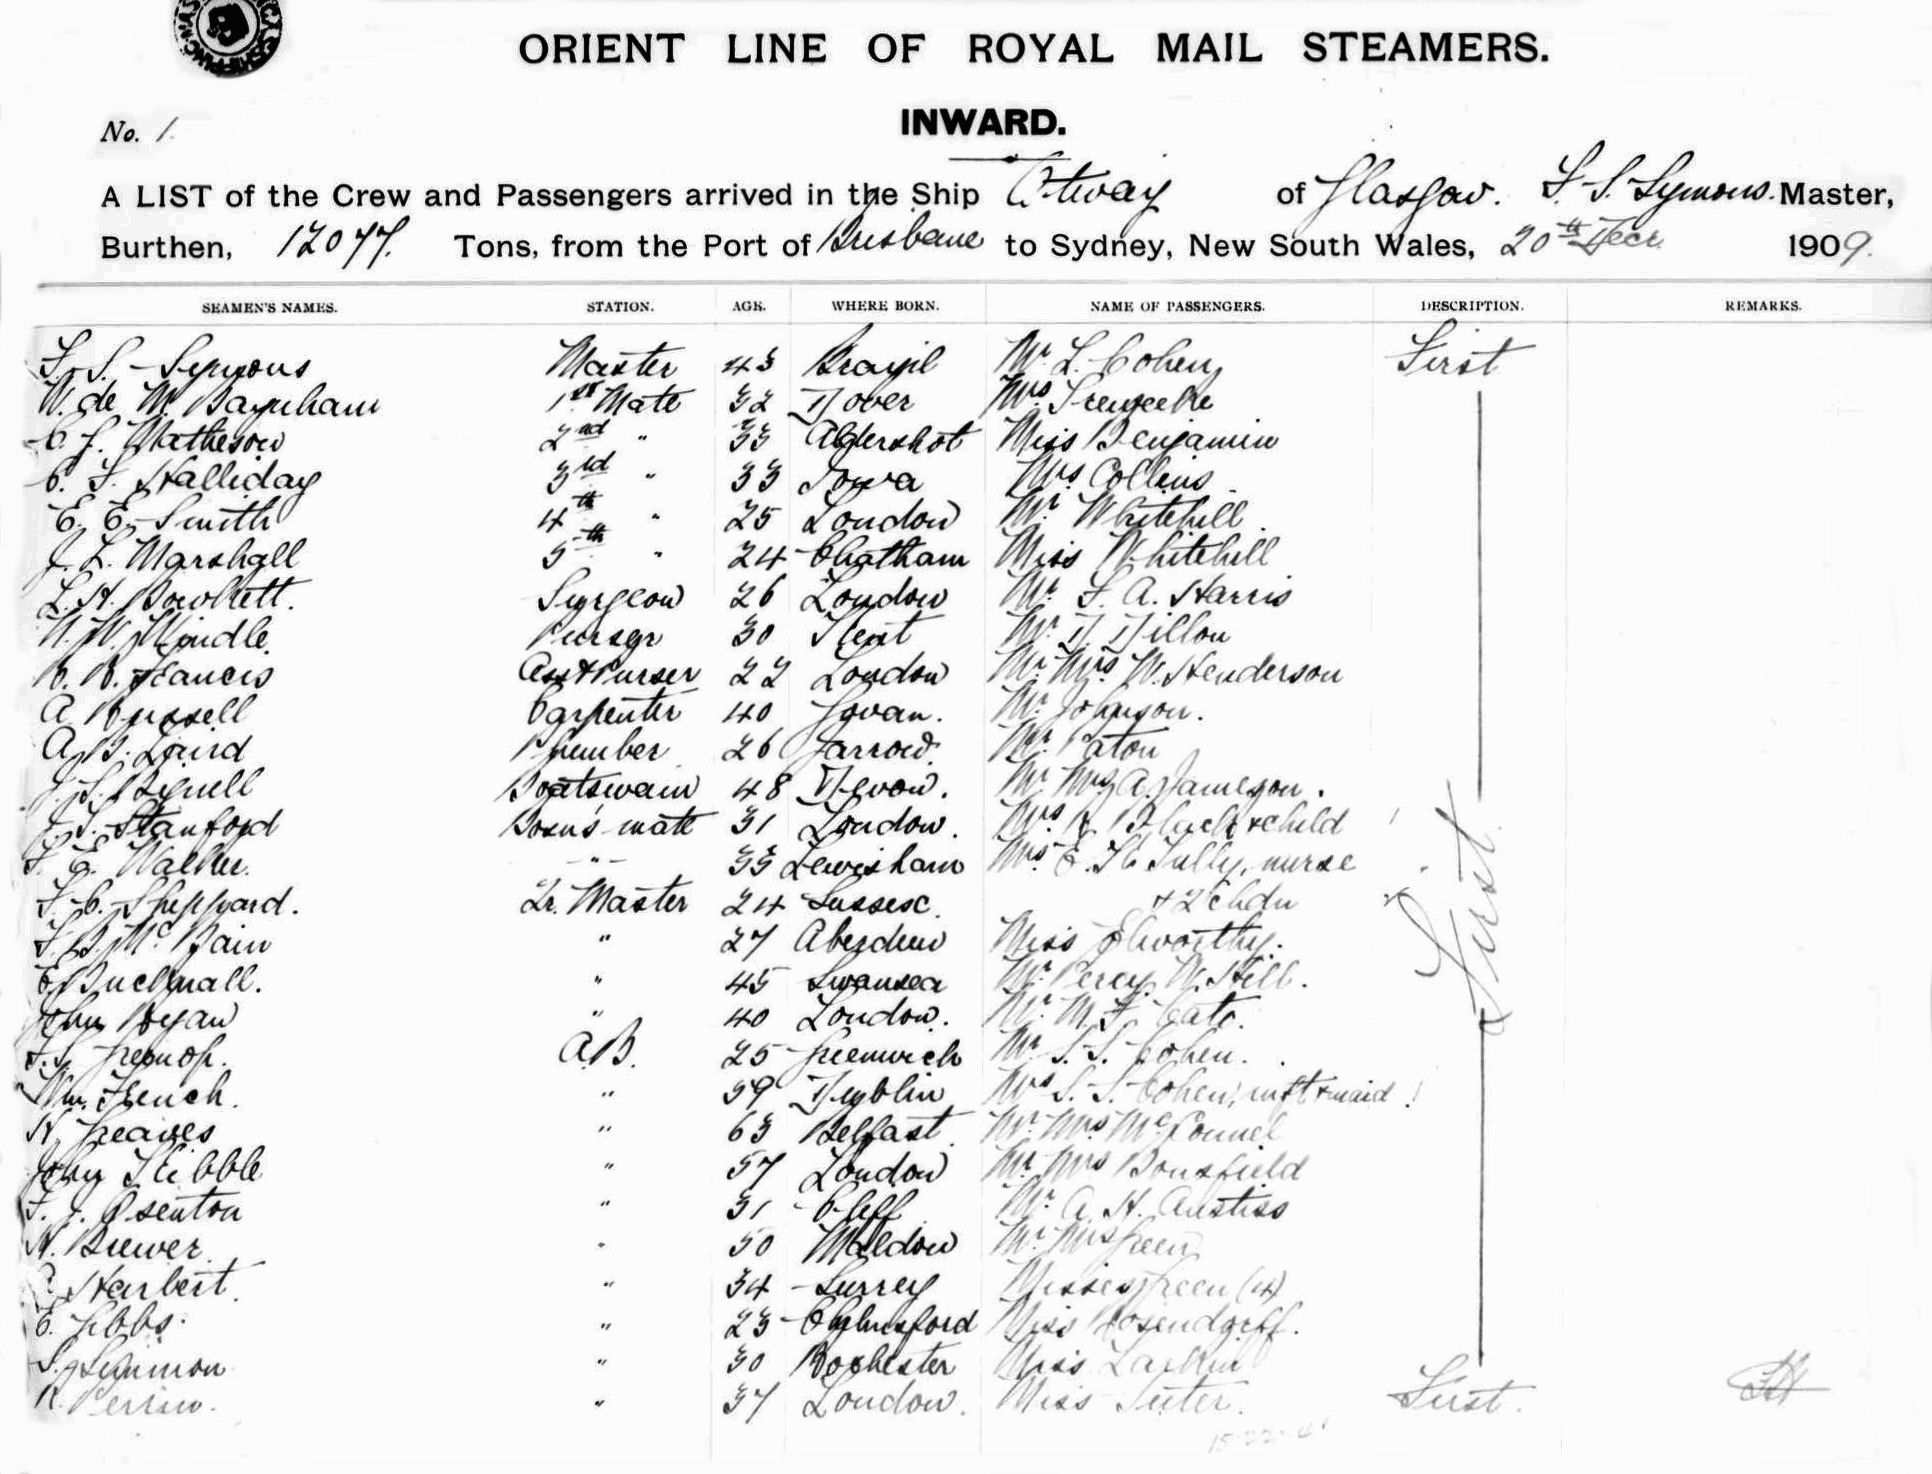 ORIENT LINE OF ROYAL MAIL STEAMERS.
INWARD.
No. 1.
A LIST of the Crew and Passengers arrived in the Ship Otway of Glasgow. F. S. Symons. Master,
Burthen, 12077. Tons, from the Port of Brisbane to Sydney, New South Wales, 20th Decr. 1909.
SEAMEN'S NAMES. STATION. AGE. WHERE BORN. NAME OF PASSENGERS. DESCRIPTION. REMARKS.
F. S. Symons Master 43 Brazil Mr L. Cohen First
W. de M. Baynham 1st Mate 32 Dover Mrs
C. J. Matheson 2nd " 33 Aldershot Miss Benjamin
C. F. Halliday 3rd " 33 Iowa Mrs Collins
E. E. Smith 4th " 25 London Mr Whitehill
J. L. Marshall 5th " 24 Chatham Miss Whitehill
L. H. Surgeon 26 London Mr F. A. Harris
N. W. Windle Purser 30 Kent Mr D Dillon
B. B. Francis Asst Purser 22 London Mr Mrs W. Henderson
A Russell Carpenter 40 Govan. Mr Johnson.
A. B. Laird Plumber 26 Jarrow. Mr Paton
Boatswain 48 Devon. Mr Mrs A. Jameson.
J. S. Stanford Bosn's mate 31 London. Mrs R Black & child
F. E. Walker. " 33 Lewisham Mrs E. Tully, nurse
F. C. Sheppard. Qr. Master 24 Sussex. & 2 chdn
McBain " 27 Aberdeen Miss Elworthy.
E. Bucknall. " 45 Swansea Mr Percy W. Hill.
John Regan " 40 London. Mr M. F. Cato.
A.B. 25 Greenwich Mr S. S. Cohen. First
Wm. French. " 59 Dublin Mrs S. S. Cohen, inft & maid
H. Greaves " 63 Belfast Mr Mrs McConnel
John Kibble " 57 London Mr Mrs Bousfield
F. J. Osenton " 31 Cliff Mr A. H. Anstiss
H. Brewer " 50 Maldon Mr Mrs Green
Harbert. " 34 Surrey Misses Green (4)
E. Gibbs. " 23 Chelmsford Miss Rosendorff.
S. " 30 Rochester Miss Larkin
R. Perrin. " 37 London. Miss Suter. First.